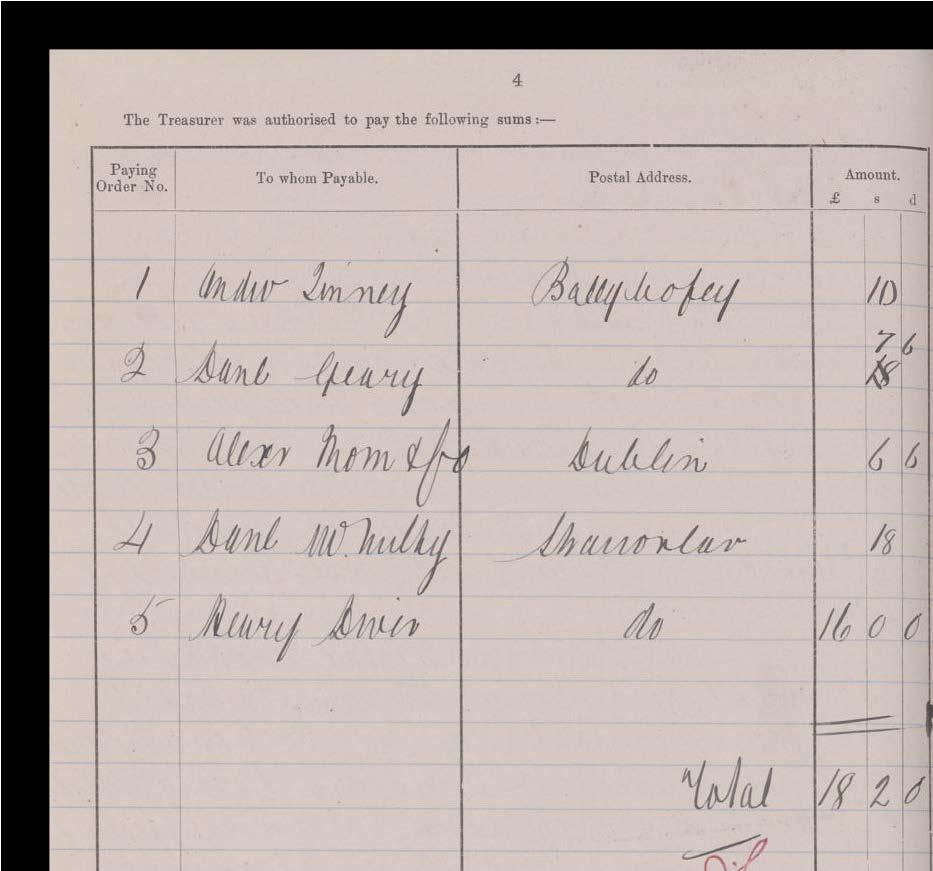 4
The Treasurer was authorised to pay the following sums:—
Paying Order No. To whom Payable. Postal Address. Amount.
£ s d
1 Andw Tinney Ballybofey 10
7 6
2 Danl Geary do 18
3 Alexr Thom & Co Dublin 6 6
4 Danl Mc Nulty Stranorlar 18
5 Henry Diver do 16 0 0
Total 18 2 0